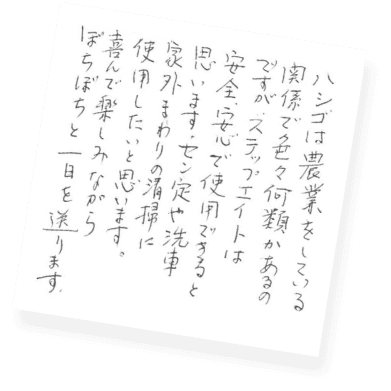 ハシゴは農業をしている
関係で色々何類かあるの
ですが、ステップエイトは
安全、安心で使用できると
思います。セン定や洗車
家外まわりの清掃に
使用したいと思います。
喜んで楽しみながら
ぼちぼちと一日を送ります。